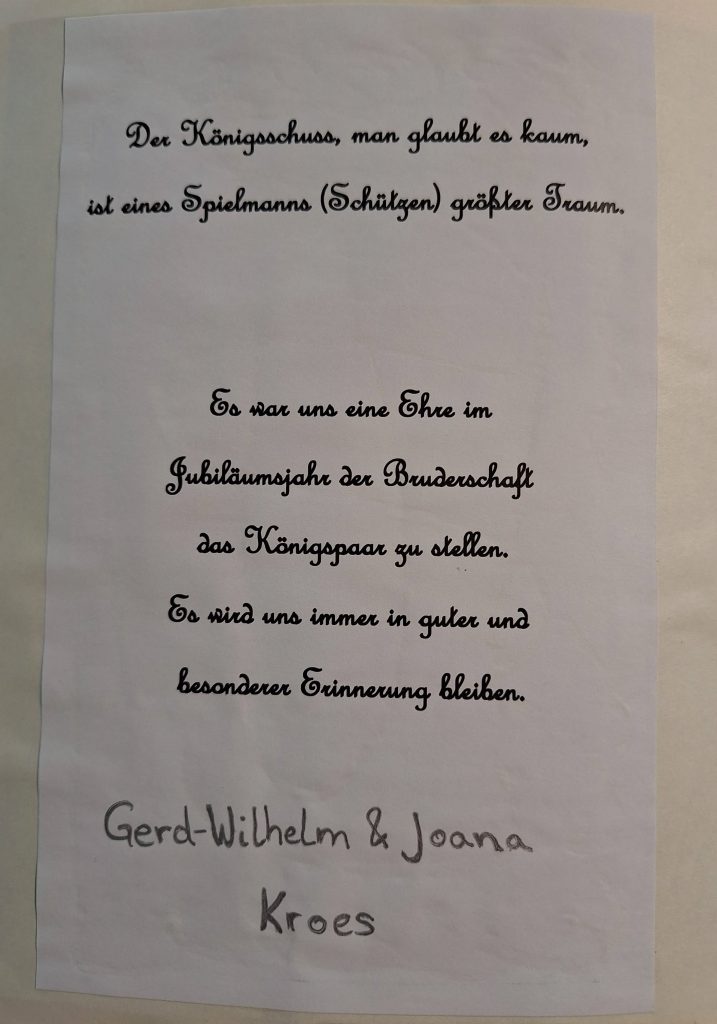 Der Königsschuss, man glaubt es kaum,
ist eines Spielmanns (Schützen) größter Traum.
Es war uns eine Ehre im
Jubiläumsjahr der Bruderschaft
das Königspaar zu stellen.
Es wird uns immer in guter und
besonderer Erinnerung bleiben.
Gerd-Wilhelm & Joana
Kroes